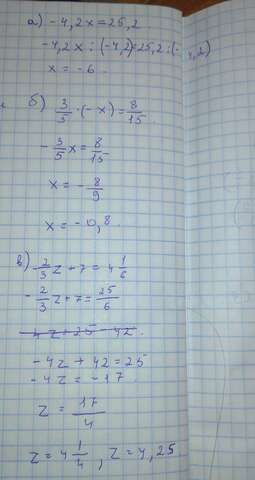 а) -4,2x=25,2
-4,2x:(-4,2)=25,2:(-4,2)
x = -6
б) 3/5 · (-x) = 8/15
-3/5x = 8/15
x = -8/9
x = -0,8
в) -2/3z+7=4 1/6
-2/3z+7=25/6
-4z+42=25
-4z=-17
z = 17/4
z = 4 1/4, z=4,25